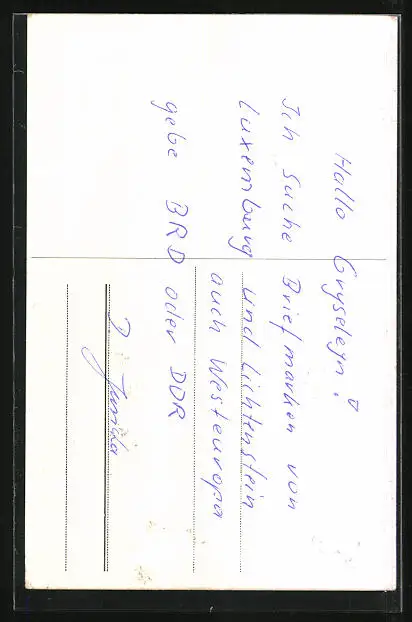 Hallo Gryseleyn!
Ich Suche Briefmarken von
Luxemburg und Lichtnstein
auch Westeuropa
gebe BRD oder DDR